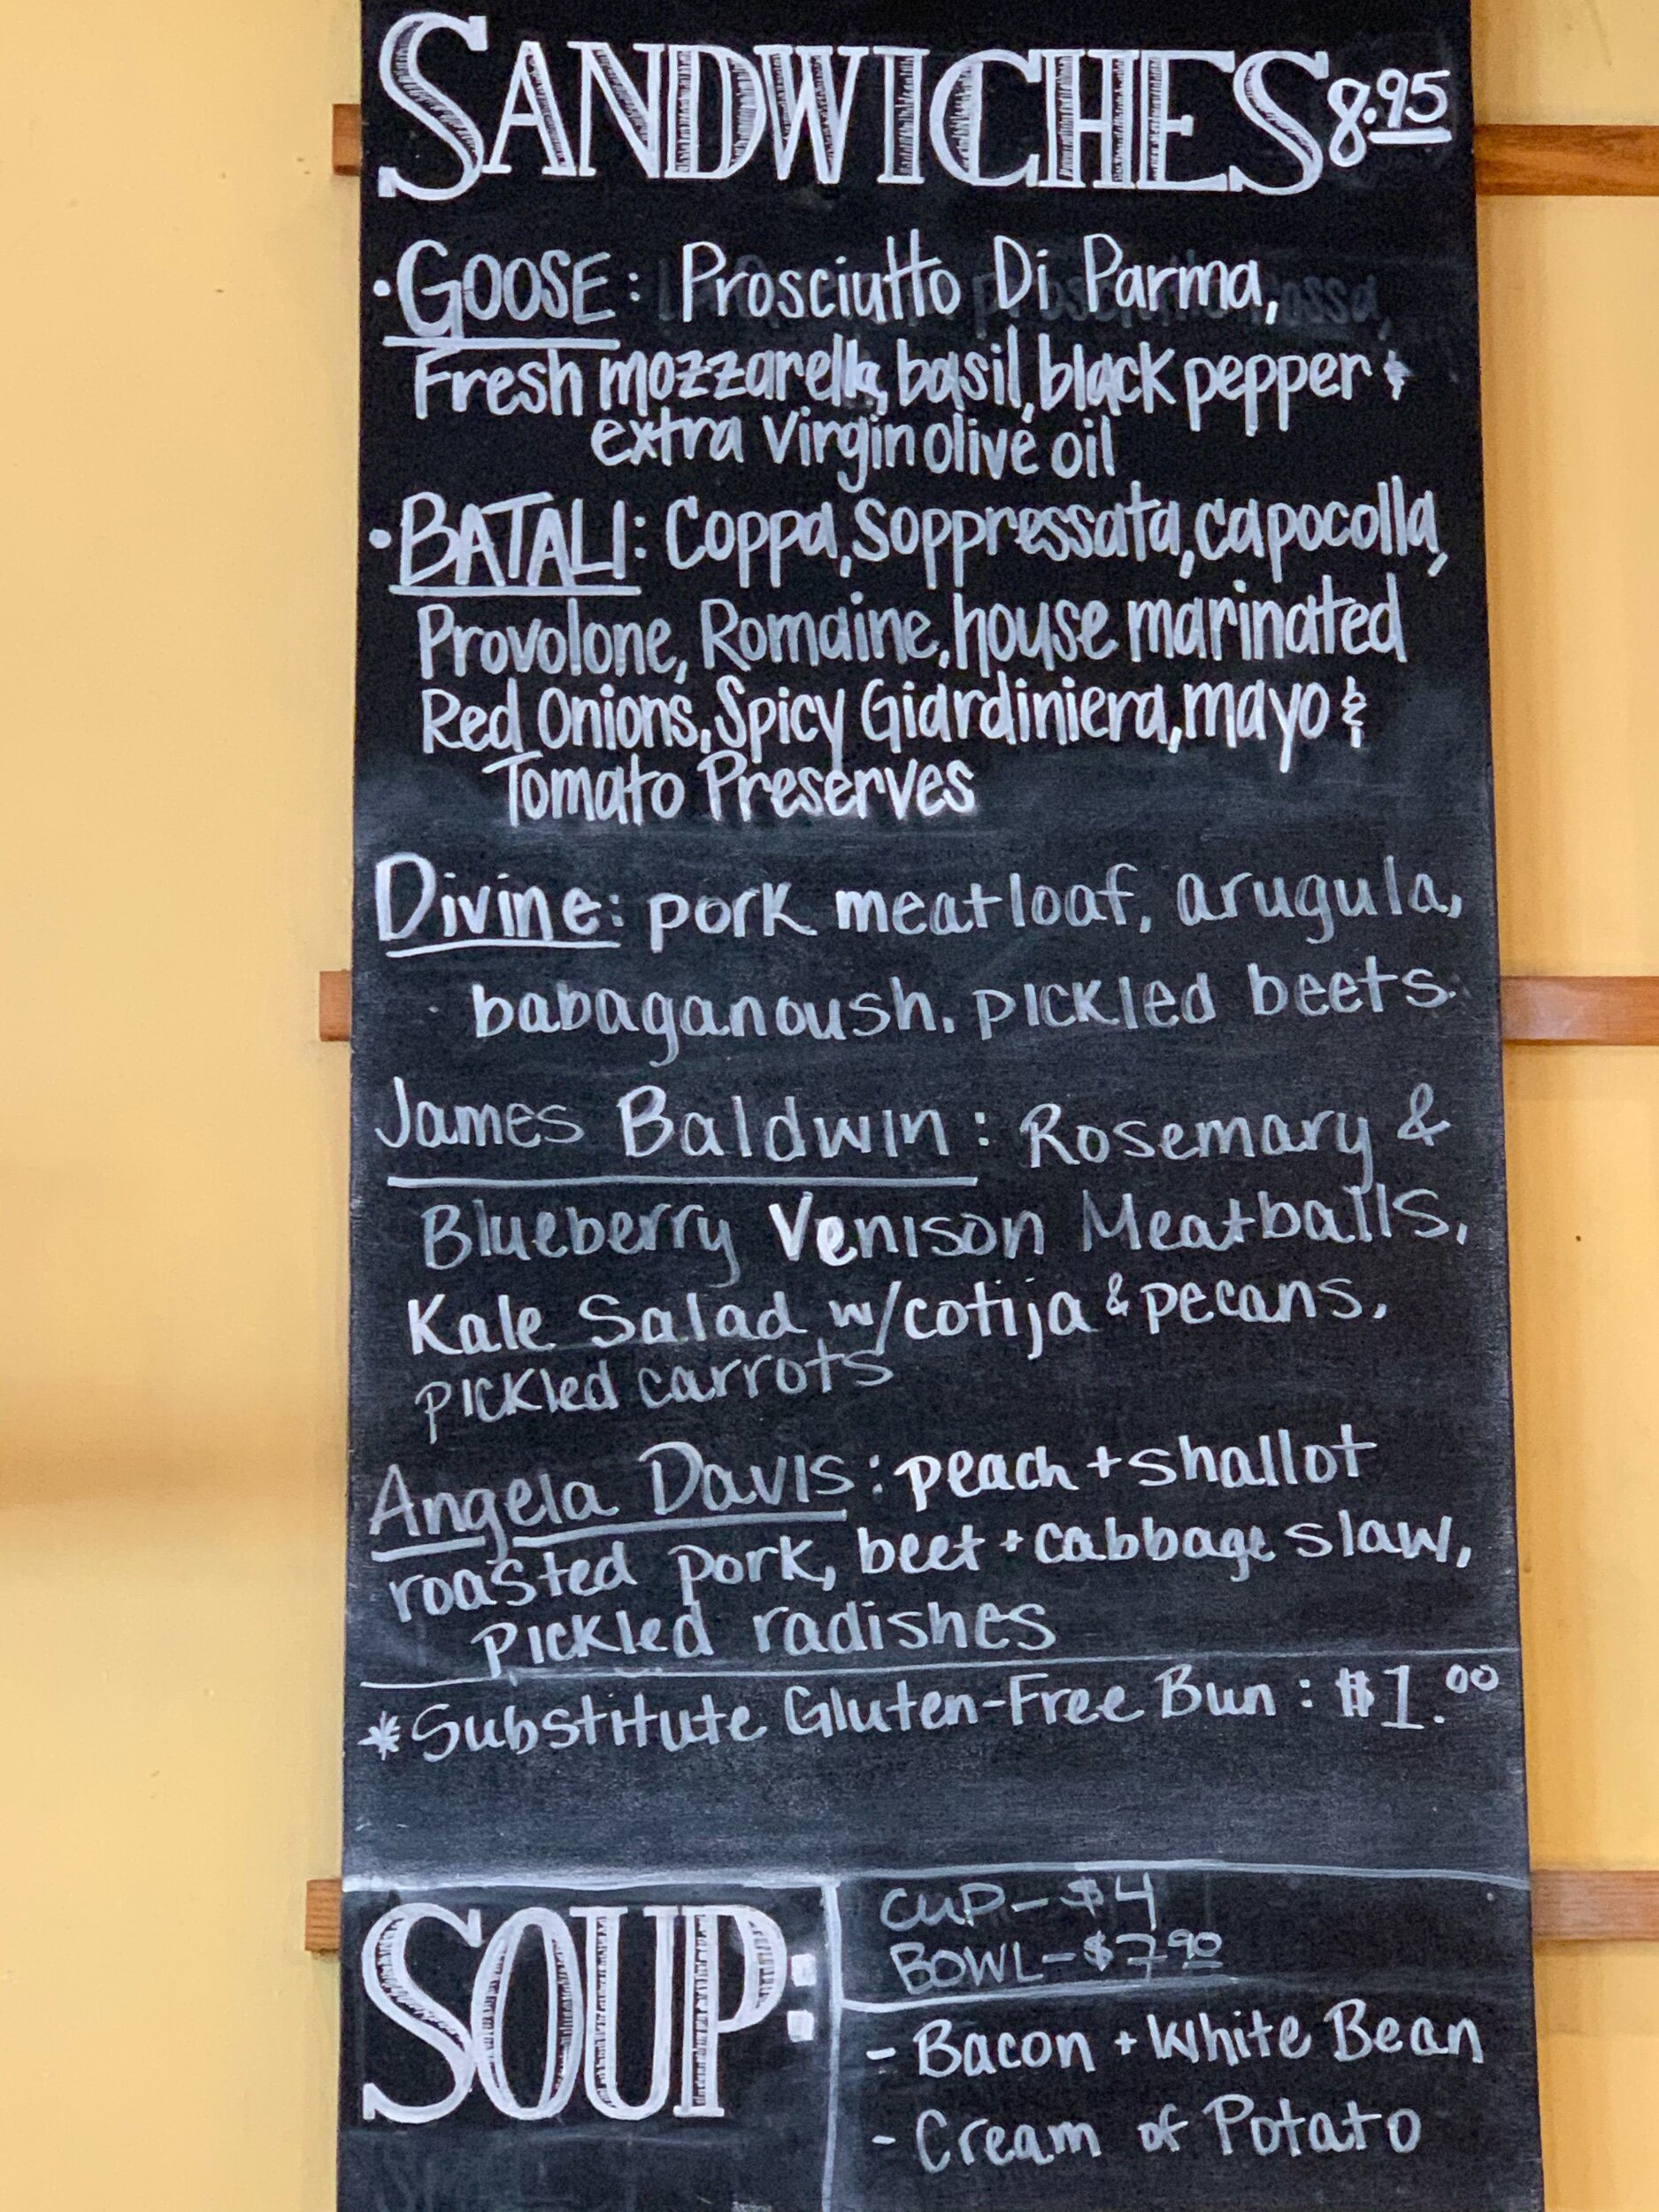 SANDWICHES 8.95
·GOOSE: Prosciutto Di Parma,
Fresh mozzarella, basil, black pepper &
extra virgin olive oil
·BATALI: Coppa, Soppressata, capocolla,
Provolone, Romaine, house marinated
Red Onions, Spicy Giardiniera, mayo &
Tomato Preserves
Divine: pork meatloaf, arugula,
babaganoush, pickled beets.
James Baldwin: Rosemary &
Blueberry Venison Meatballs,
Kale Salad w/cotija & pecans,
pickled carrots
Angela Davis: peach + shallot
roasted pork, beet + cabbage slaw,
pickled radishes
*Substitute Gluten-Free Bun: $1.00
SOUP:
CUP-$4
BOWL-$7.90
- Bacon + White Bean
- Cream of Potato